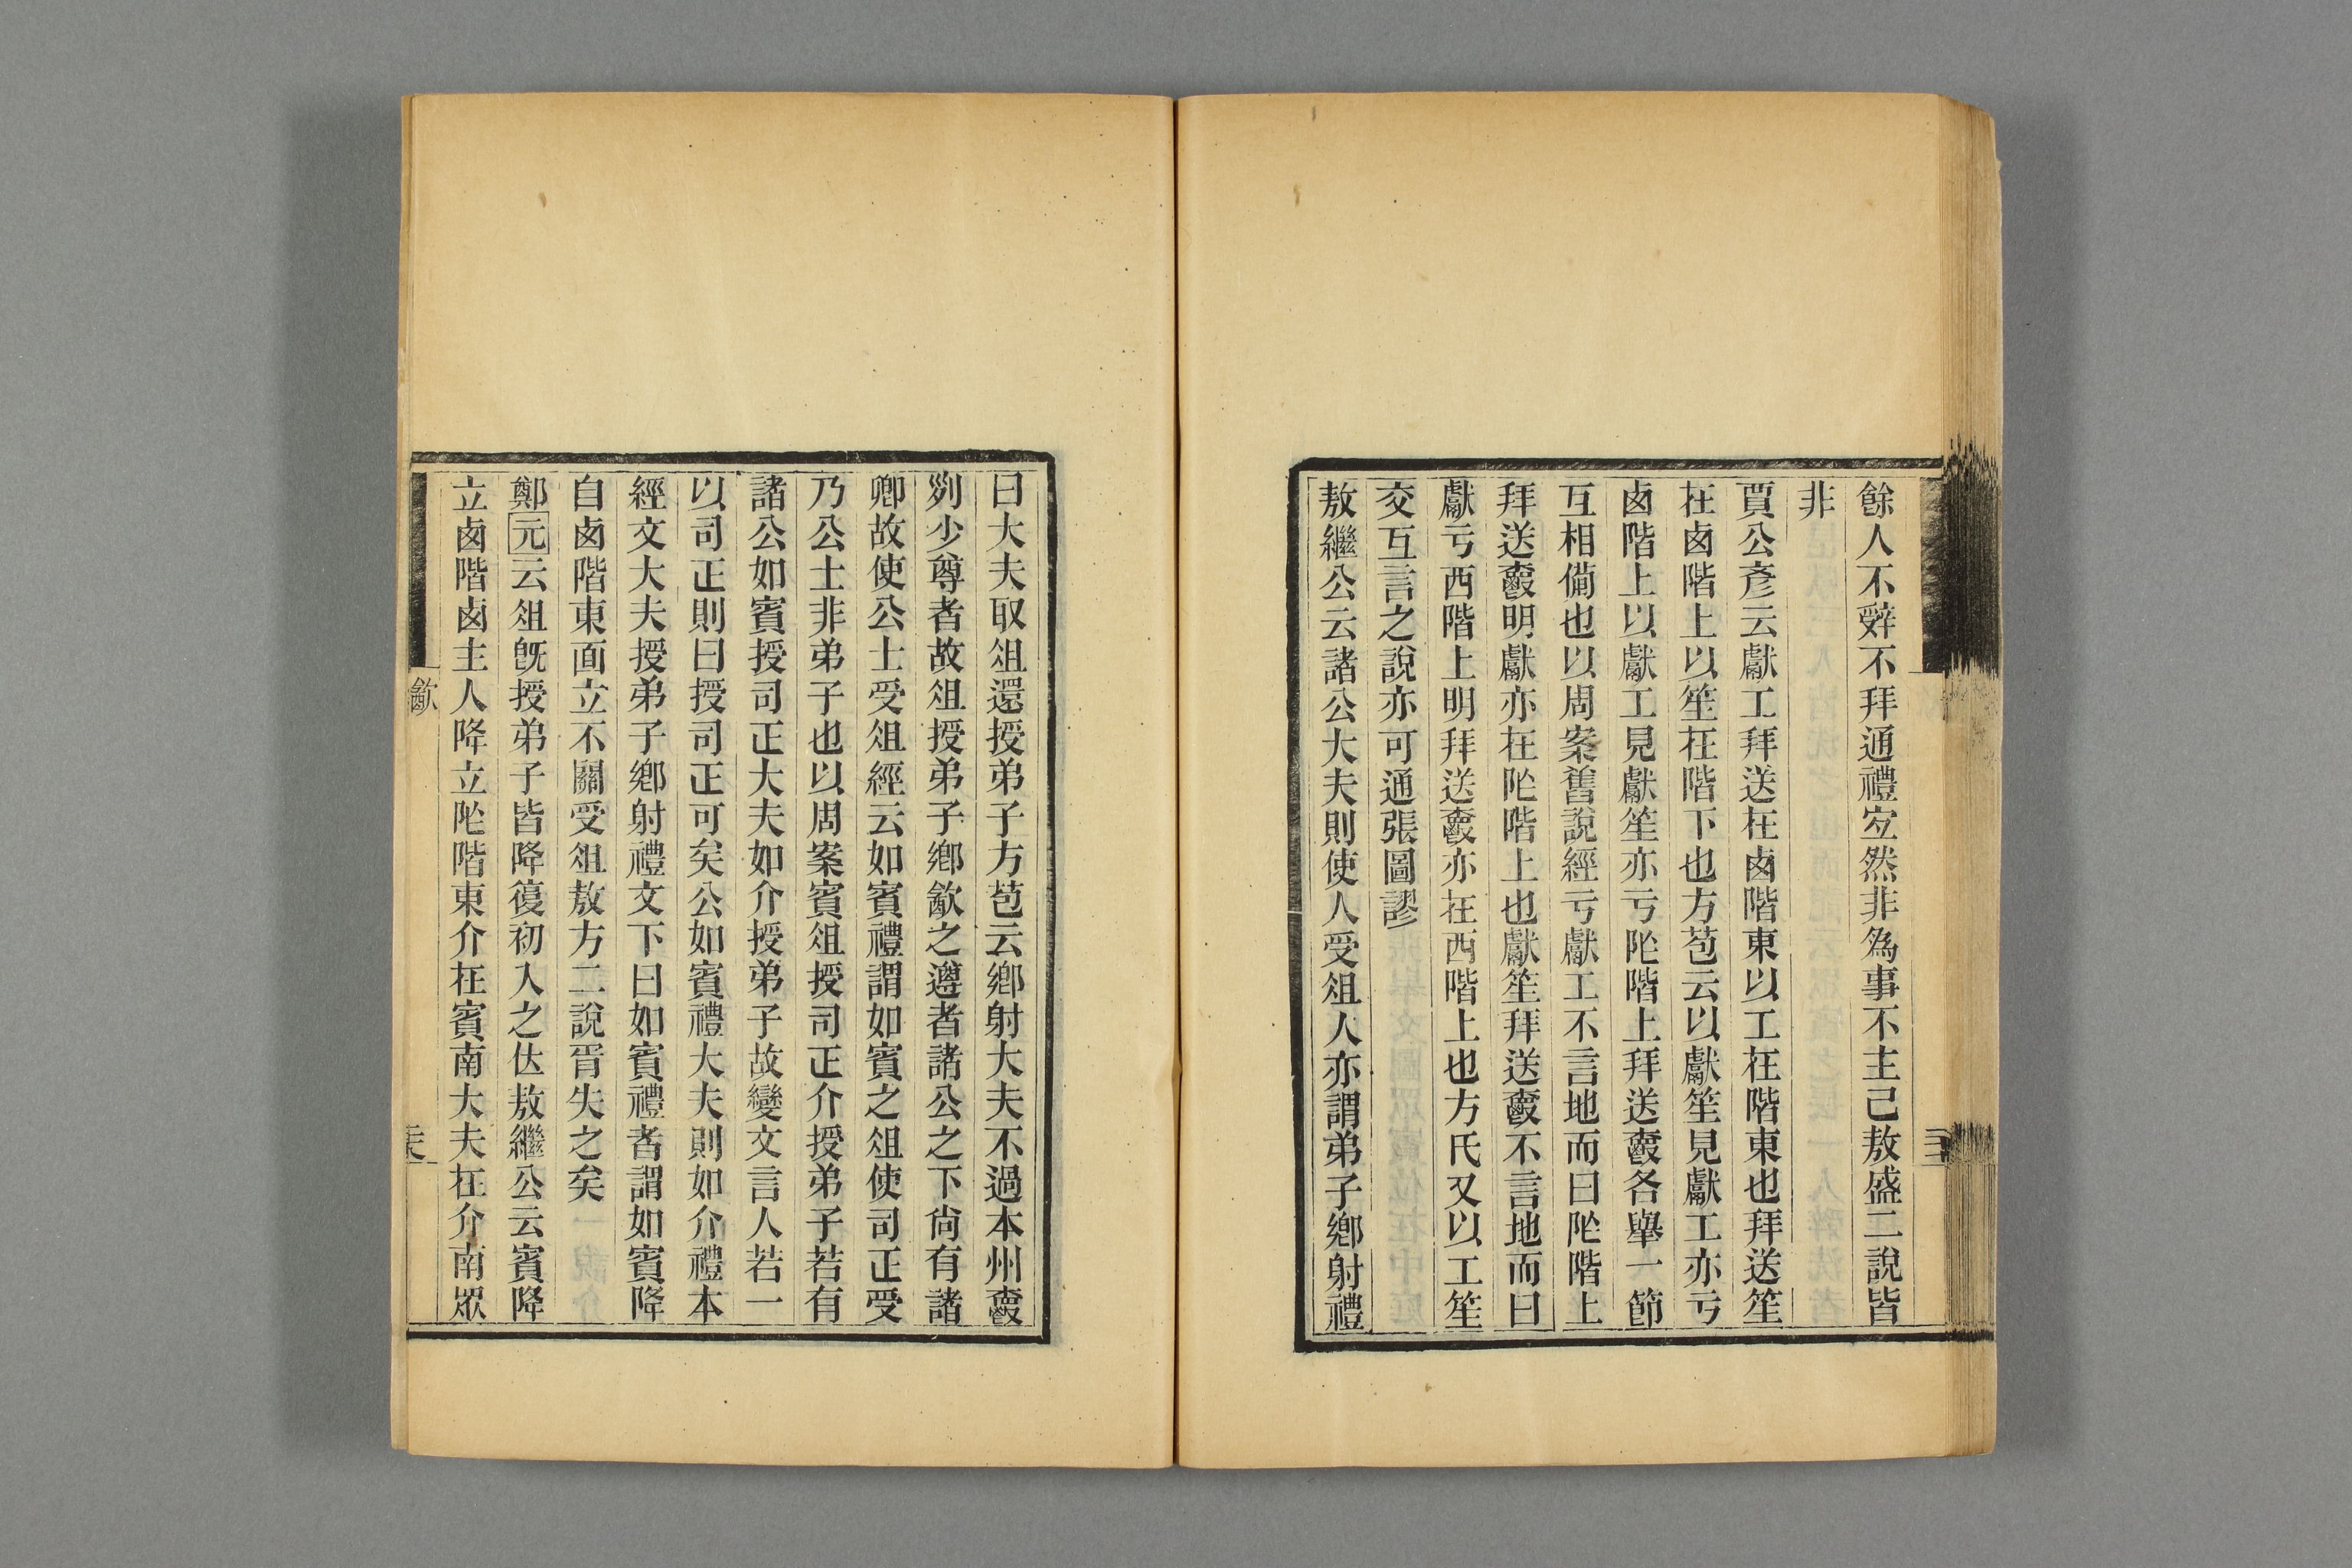 餘人不辤不拜通禮宐然非為事不主己敖盛二說皆
非
賈公彥云獻工拜送在卥階東以工在階東也拜送笙
在卥階上以笙在階下也方苞云以獻笙見獻工亦亏
卥階上以獻工見獻笙亦亏阼階上拜送爵各舉一節
互相僃也以周案舊說經亏獻工不言地而曰阼階上
拜送爵明獻亦在阼階上也獻笙拜送爵不言地而曰
獻亏西階上明拜送爵亦在西階上也方氏又以工笙
交互言之說亦可通張圖謬
敖繼公云諸公大夫則使人受俎人亦謂弟子鄉射禮
曰大夫取俎還授弟子方苞云鄉射大夫不過本州爵
列少尊者故俎授弟子鄉歙之遵者諸公之下尙有諸
卿故使公士受俎經云如賓禮謂如賓之俎使司正受
乃公士非弟子也以周案賓俎授司正介授弟子若有
諸公如賓授司正大夫如介授弟子故變文言人若一
以司正則曰授司正可矣公如賓禮大夫則如介禮本
經文大夫授弟子鄉射禮文下曰如賓禮者謂如賓降
自卥階東面立不關受俎敖方二說胥失之矣
鄭元云俎旣授弟子皆降復初入之位敖繼公云賓降
立卥階卥主人降立阼階東介在賓南大夫在介南眾